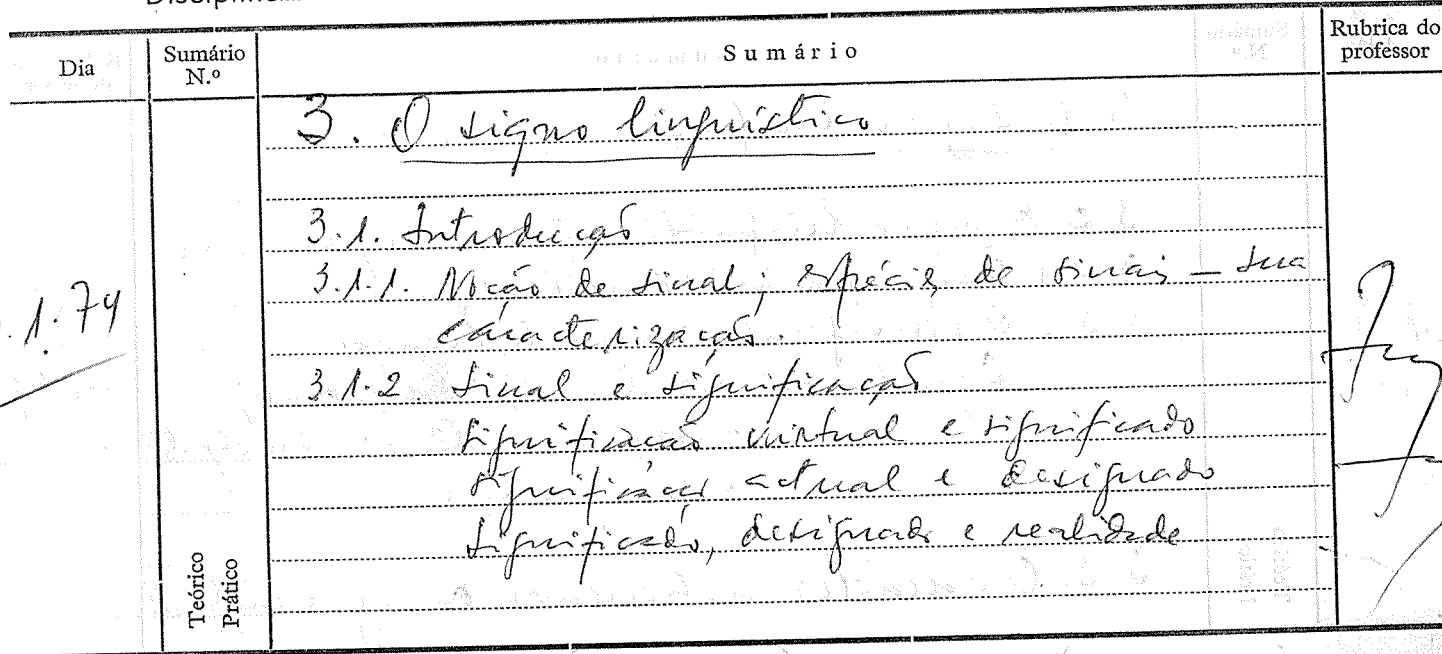 Dia
Sumário N.º
Sumário
Rubrica do professor
3. O signo linguístico
3.1. Introdução
3.1.1. Noção de sinal; espécies de sinais – sua
caracterização.
1.74
3.1.2 Sinal e significação
significação virtual e significado
significação actual e designado
significado, designado e realidade
Teórico
Prático